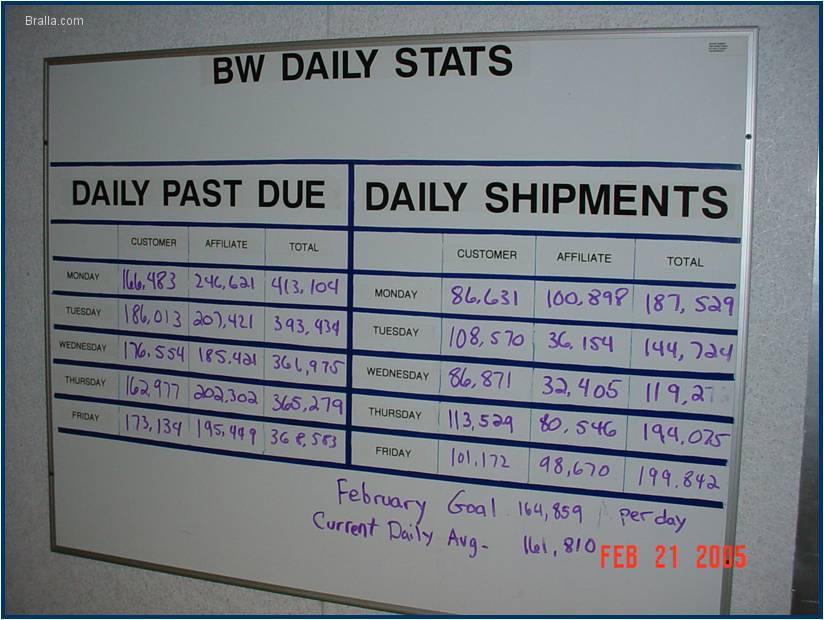 Bralla.com
BW DAILY STATS
DAILY PAST DUE
CUSTOMER AFFILIATE TOTAL
MONDAY 166,483 246,621 413,104
TUESDAY 186,013 207,421 393,434
WEDNESDAY 176,554 185,421 361,975
THURSDAY 162,977 202,302 365,279
FRIDAY 173,134 195,449 368,583
DAILY SHIPMENTS
CUSTOMER AFFILIATE TOTAL
MONDAY 86,631 100,898 187,529
TUESDAY 108,570 36,154 144,724
WEDNESDAY 86,871 32,405
THURSDAY 113,529 80,546 194,075
FRIDAY 101,172 98,670 199,842
February Goal 164,859 per day
Current Daily Avg- 161,810
FEB 21 2005